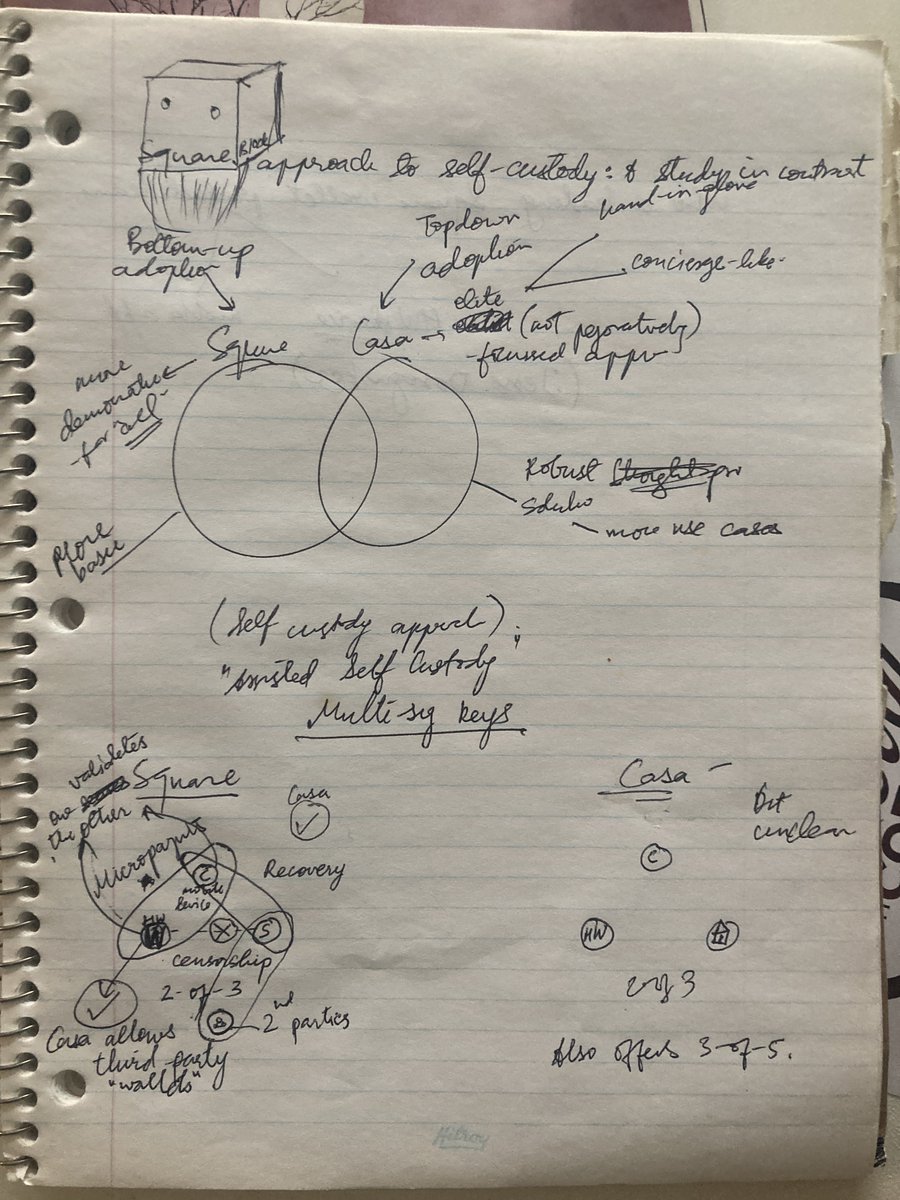 Square Block
approach to self-custody: A study in contrast
hand-in-glove
Topdown
adoption
concierge-like
Bottom-up
adoption
elite
Square
Casa → (not pejoratively)
-focussed
more
democratic
for "all"
Robust
more use cases
More
basic
(Self custody approach);
"Assisted Self Custody"
Multi-sig keys
validates
one
the other
Square
Casa
✓
Recovery
Micropayments
C
mobile
device
HW
X
S
censorship
2-of-3
& 2nd parties
✓
Casa allows
third party
"wallets"
Casa -
But
unclear
C
HW
2 of 3
Also offers 3-of-5.
Hilroy